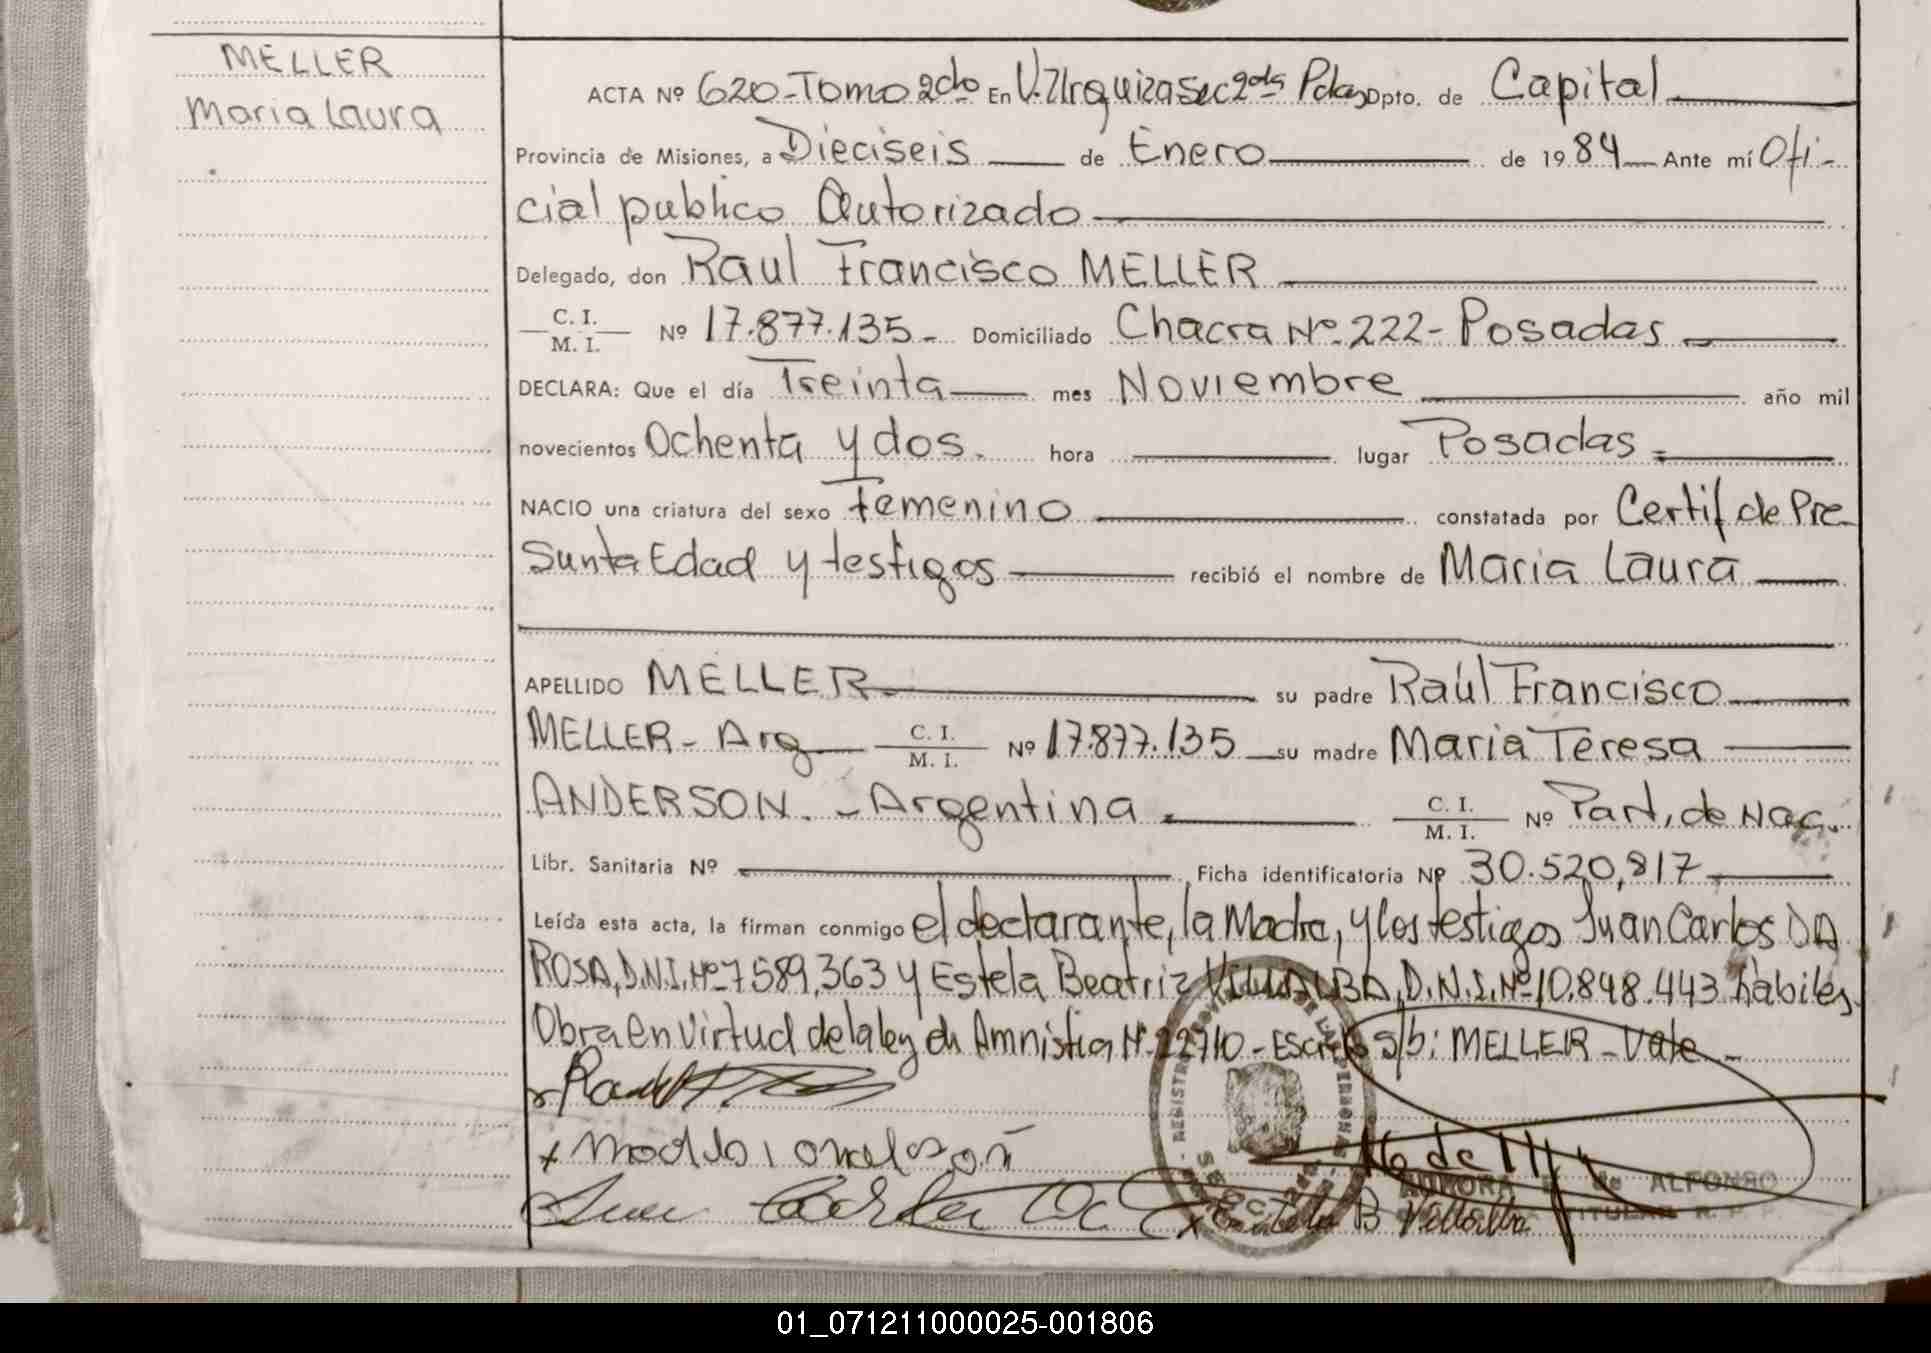 MELLER
Maria Laura
ACTA Nº 620-Tomo 2do En V. Urquiza Sec 2da Pdas Dpto. de Capital
Provincia de Misiones, a Dieciseis de Enero de 1984 Ante mí Ofi-
cial publico Autorizado
Delegado, don Raul Francisco MELLER
C. I.
M. I. Nº 17.877.135.- Domiciliado Chacra Nº 222- Posadas
DECLARA: Que el día Treinta mes Noviembre año mil
novecientos Ochenta y dos. hora lugar Posadas
NACIO una criatura del sexo Femenino constatada por Certif de Pre-
sunta Edad y testigos recibió el nombre de Maria Laura
APELLIDO MELLER su padre Raúl Francisco
MELLER- Arg C. I.
M. I. Nº 17.877.135 su madre Maria Teresa
ANDERSON.- Argentina C. I.
M. I. Nº Part. de Nac.
Libr. Sanitaria Nº Ficha identificatoria Nº 30.520,817
Leída esta acta, la firman conmigo el declarante, la Madre, y los testigos Juan Carlos DA
ROSA, D.N.I. Nº 7.589.363 y Estela Beatriz VILLALBA, D.N.I. Nº 10.848.443 hábiles
Obra en virtud de la ley de Amnistia Nº 22710- Escrito s/b: MELLER - Vale
Juan Carlos Da
Estela B Villalba
AURORA de ALFONSO
TITULAR R. P. P.
01_071211000025-001806